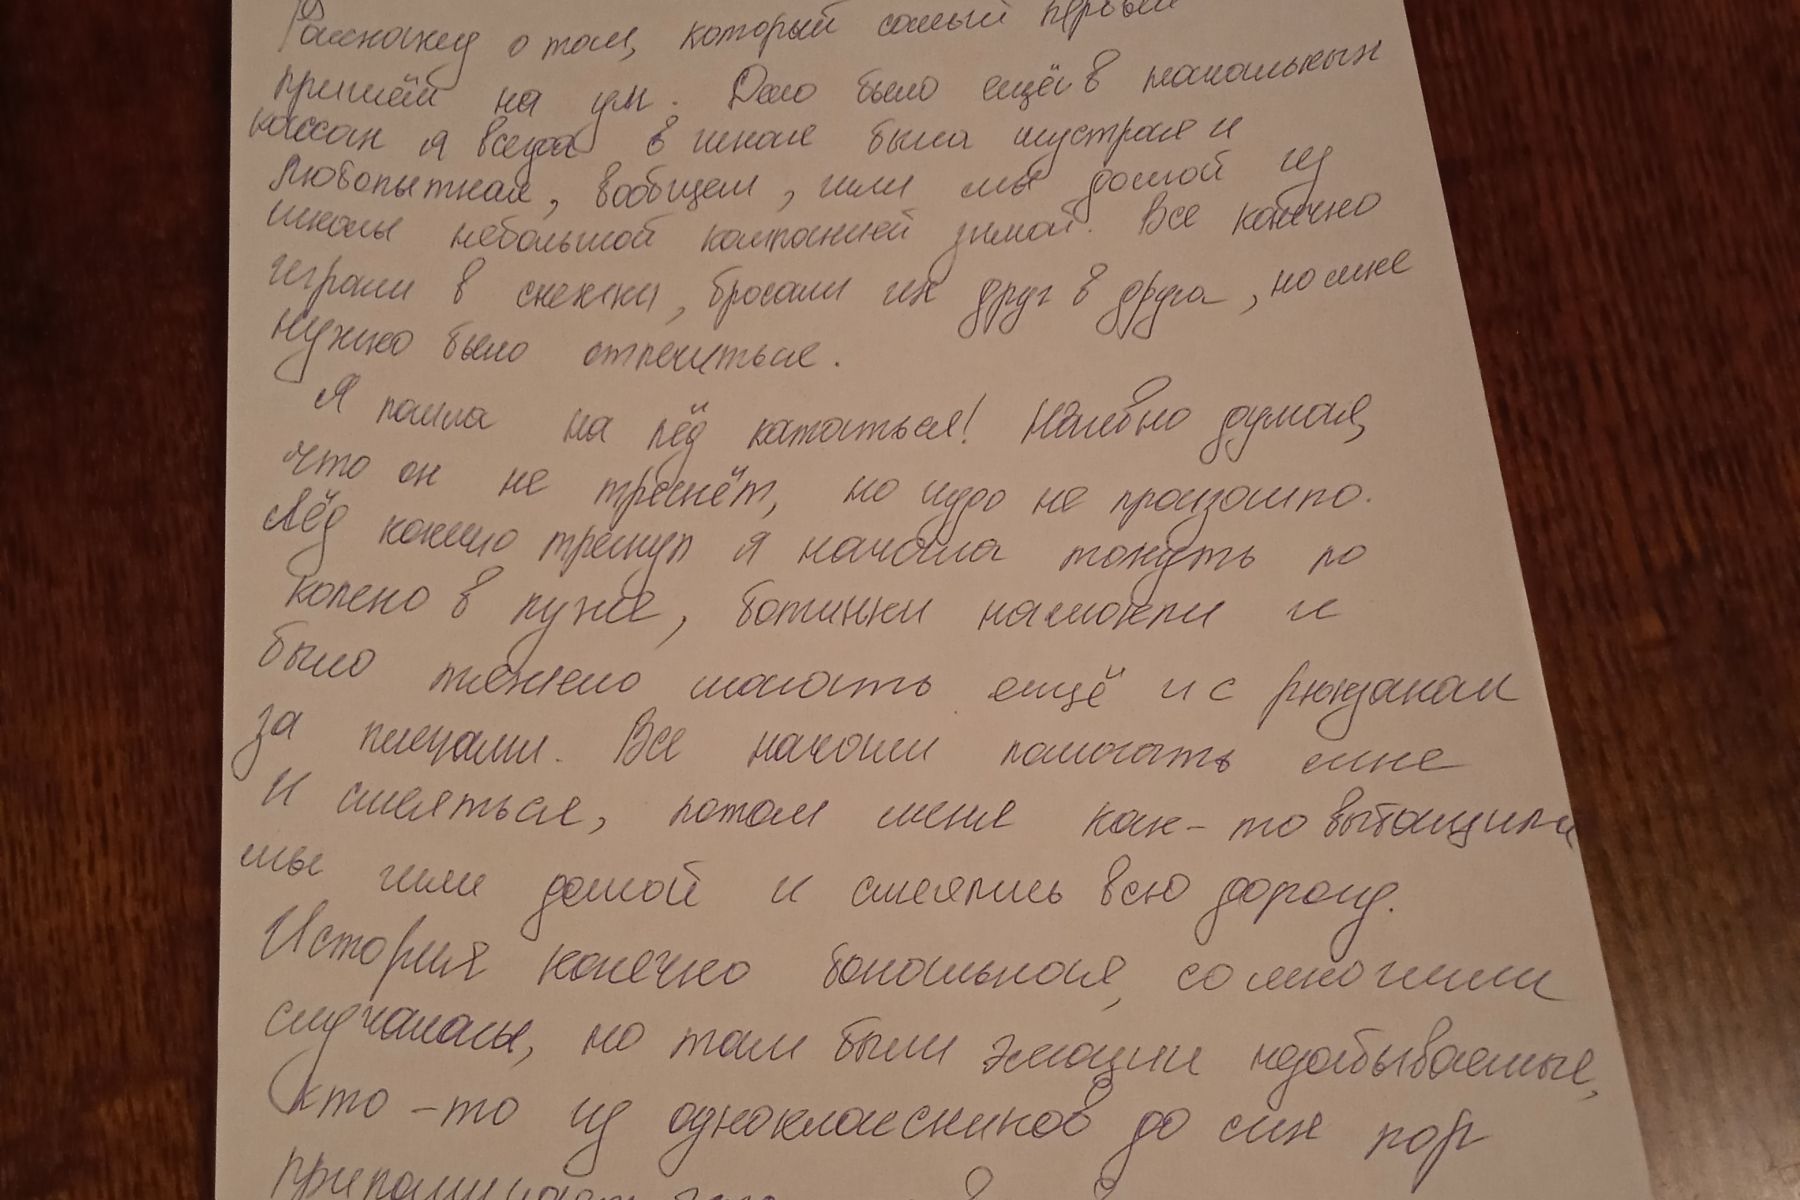 Расскажу о том, который самый первый
пришёл на ум. Дело было ещё в начальных
классах я всегда в школе была шустрая и
любопытная, вообщем, шли мы домой из
школы небольшой компанией зимой. Все конечно
играли в снежки, бросали их друг в друга, но мне
нужно было отличиться.
Я пошла на лёд кататься! Наивно думая,
что он не треснёт, но чудо не произошло.
Лёд конечно треснул я начала тонуть по
колено в луже, ботинки намокли и
было тяжело шагать ещё и с рюкзаком
за плечами. Все начали помогать мне
и смеяться, потом меня как-то вытащили
мы шли домой и смеялись всю дорогу.
История конечно банальная, со многими
случалась, но там были эмоции незабываемые,
кто-то из одноклассников до сих пор
припоминает